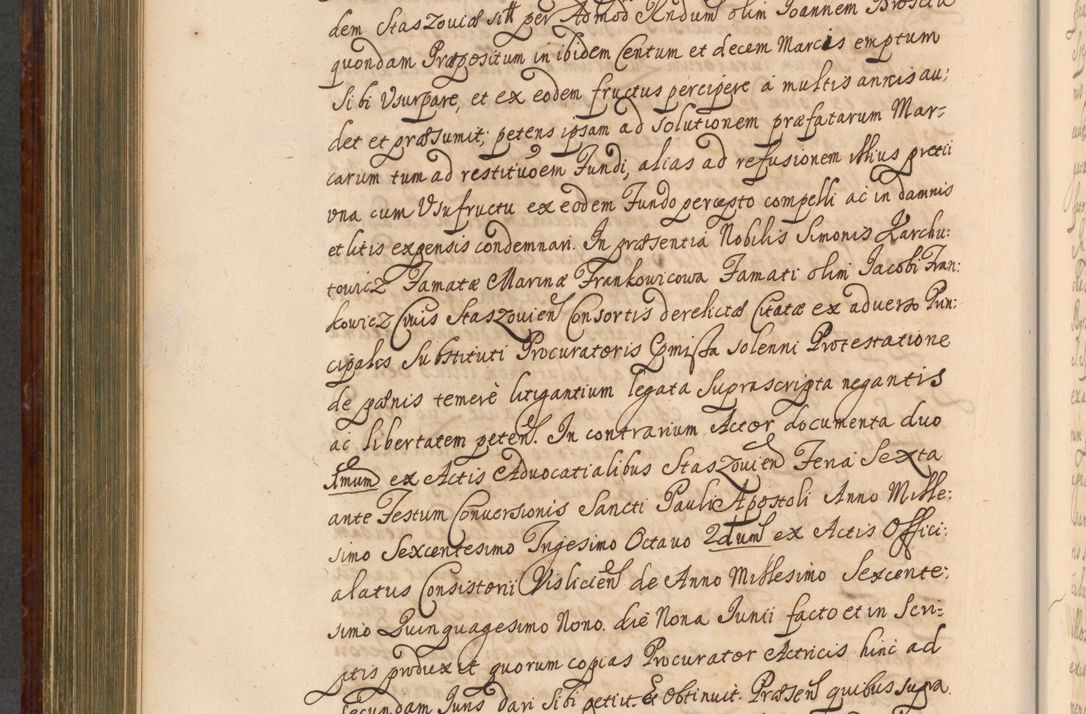 dem Staszoviæ sitt per Admod Rndum olim Joannem Brosciu
quondam Præpositum in ibidem Centum et decem Marcis emptum
Sibi Usurpare, et ex eodem fructus percipere a multis annis au:
det et præsumit; petens ipsam ad solutionem præfatarum Mar-
carum tum ad restituõem Fundi, alias ad refusionem illius pretii
vna cum Usufructu ex eodem Fundo percepto compelli ac in damnis
et litis expensis condemnari. In præsentia Nobilis Simonis Karchu:
towicz Famatæ Marinæ Frankowicowa Famati olim Jacobi Fran:
kowicz Civis Staszovien Consortis derelictæ Citatæ ex adverso Prin:
cipales Substituti Procuratoris Cõmissa solenni Protestatione
de pænis temerè litigantium legata Suprascripta negantis
ac libertatem peten. In contrarium Actor documenta duo
1mum ex Actis Advocatialibus Staszovien Feria Sexta
ante Festum Conversionis Sancti Pauli Apostoli Anno Mille:
simo Sexcentesimo Trigesimo Octavo 2dum ex Actis Offici:
alatus Consistorii Vislicien de Anno Millesimo Sexcente:
simo Quinquagesimo Nono. die Nona Junii facto et in Scri-
ptis produxit quorum copias Procurator Actricis hinc ad
secundam Juris dari Sibi petiit. & Obtinuit. Præsen quibus supra.